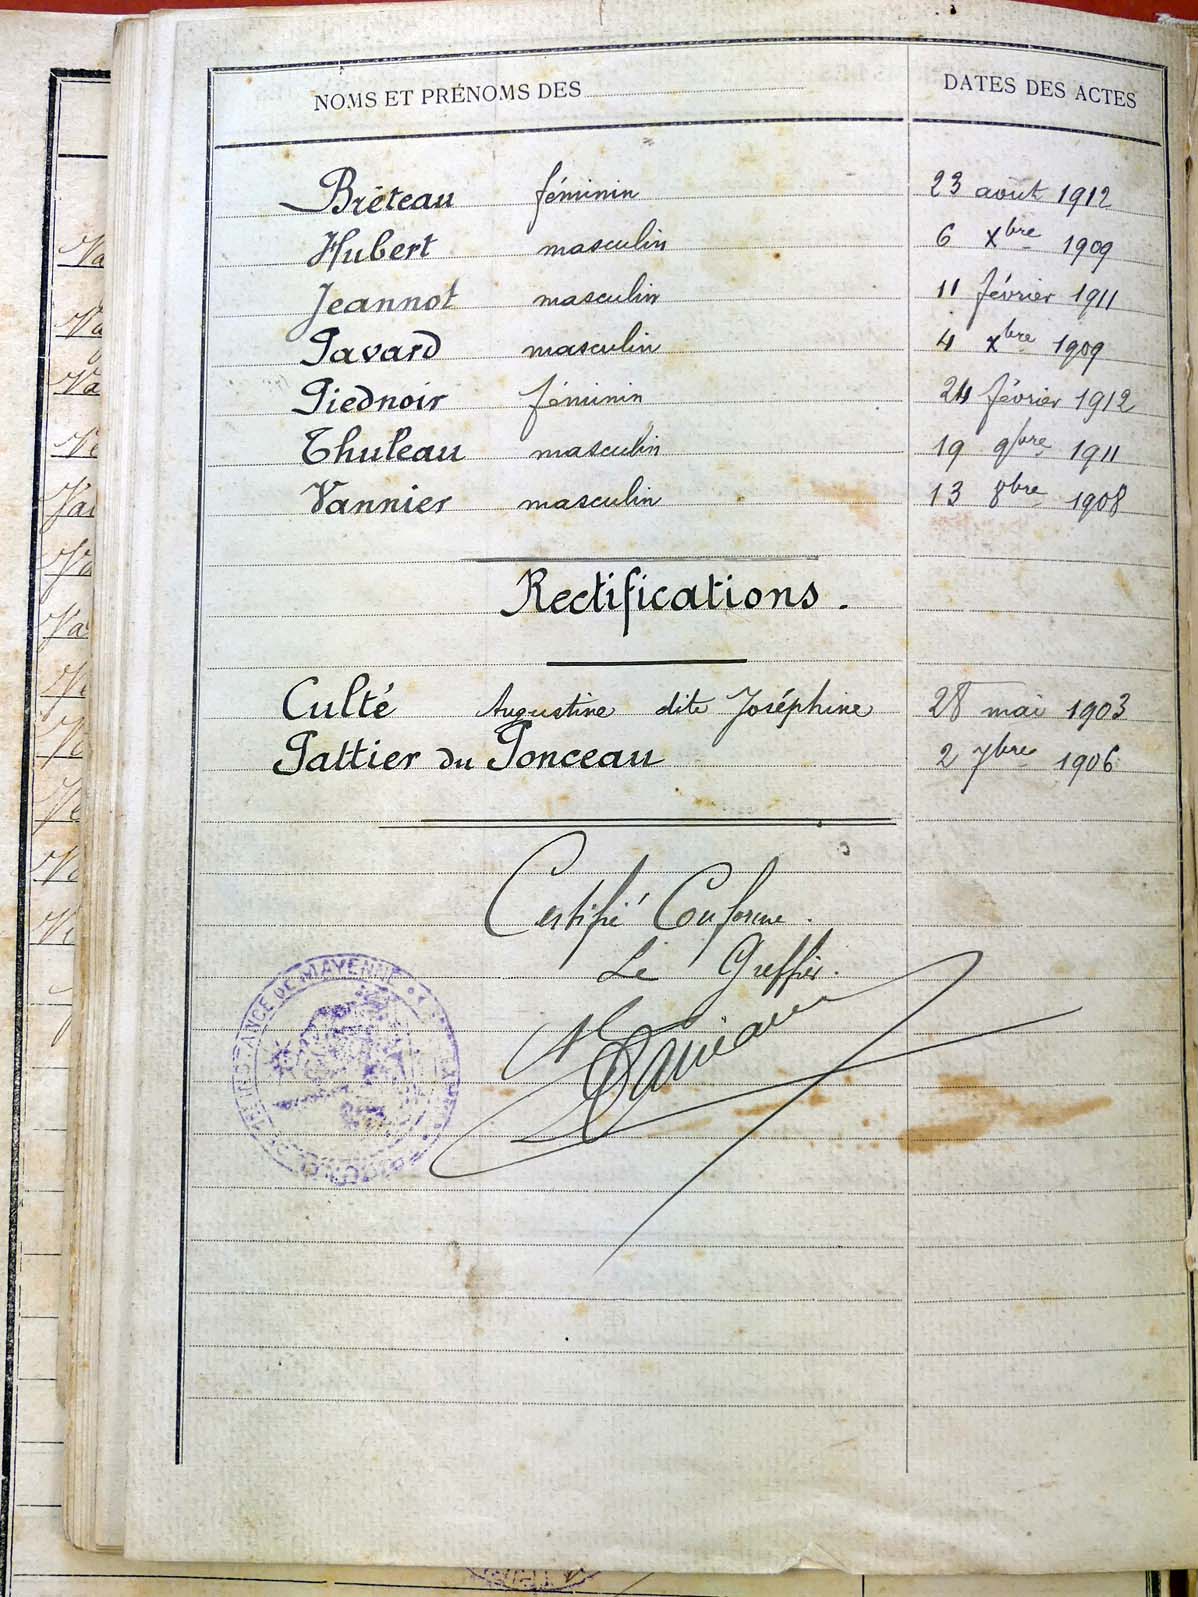 NOMS ET PRÉNOMS DES
DATES DES ACTES
Brêteau féminin 23 août 1912
Hubert masculin 6 xbre 1909
Jeannot masculin 11 février 1911
Pavard masculin 4 xbre 1909
Piednoir féminin 24 février 1912
Thuleau masculin 19 9bre 1911
Vannier masculin 13 8bre 1908
Rectifications.
Culté Augustine dite Joséphine 28 mai 1903
Pattier du Ponceau 2 7bre 1906
Certifié Conforme.
Le Greffier.
INSTANCE DE MAYENNE